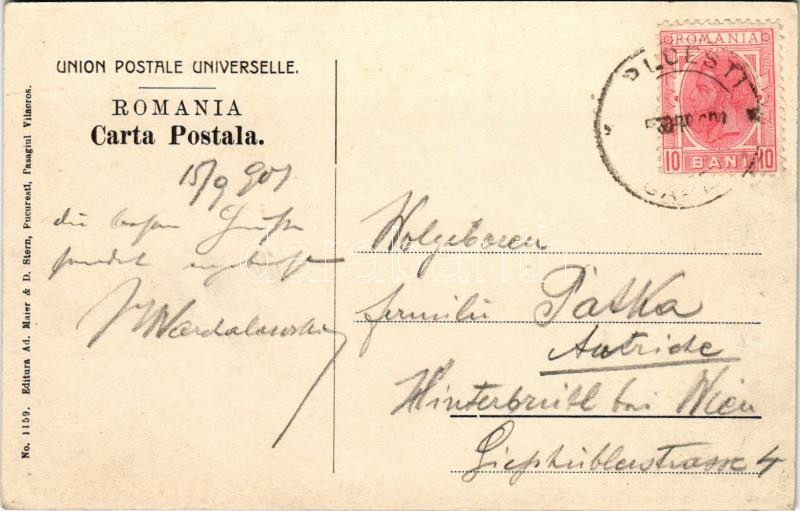 UNION POSTALE UNIVERSELLE.
ROMANIA
Carta Postala.
15/9 901
die besten Grüße
sendet
Wolgeboren
familie Patka
Autriche
Hinterbrühl bei Wien
Gießhüblerstrasse 4
No. 1159. Editura Ad. Maier & D. Stern, Bucuresti, Pasagiul Vilacros.
PLOESTI
ROMANIA
10 BANI 10
darabanth